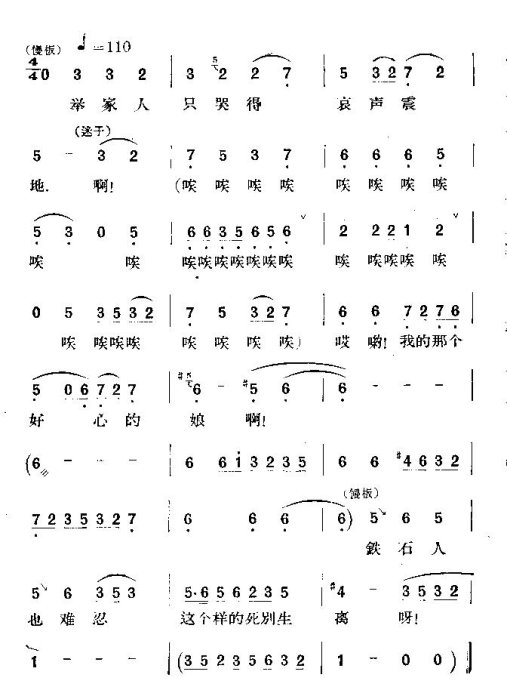 (慢板) ♩=110
4/4 0 3 3 2 | 3 5 2 2 7 | 5 3 2 7 2 |
举家人 只哭得 哀声震
(迷子)
5 - 3 2 | 7 5 3 7 | 6 6 6 5 |
地. 啊! (唉唉唉唉 唉唉唉唉
5 3 0 5 | 6 6 3 5 6 5 6 ∨ | 2 2 2 1 2 ∨ |
唉 唉 唉唉唉唉唉唉唉 唉唉唉唉唉
0 5 3 5 3 2 | 7 5 3 2 7 | 6 6 7 2 7 6 |
唉 唉唉唉 唉唉唉唉) 哎哟! 我的那个
5 0 6 7 2 7 | #5 6 - #5 6 | 6 - - - |
好心的 娘 啊!
(6 - - - | 6 6 1 3 2 3 5 | 6 6 #4 6 3 2 |
(慢板)
7 2 3 5 3 2 7 | 6 6 6 | 6) 5 6 5 |
鉄石人
5 6 3 5 3 | 5·6 5 6 2 3 5 | #4 - 3 5 3 2 |
也难忍 这个样的死别生 离 呀!
1 - - - | (3 5 2 3 5 6 3 2 | 1 - 0 0) |